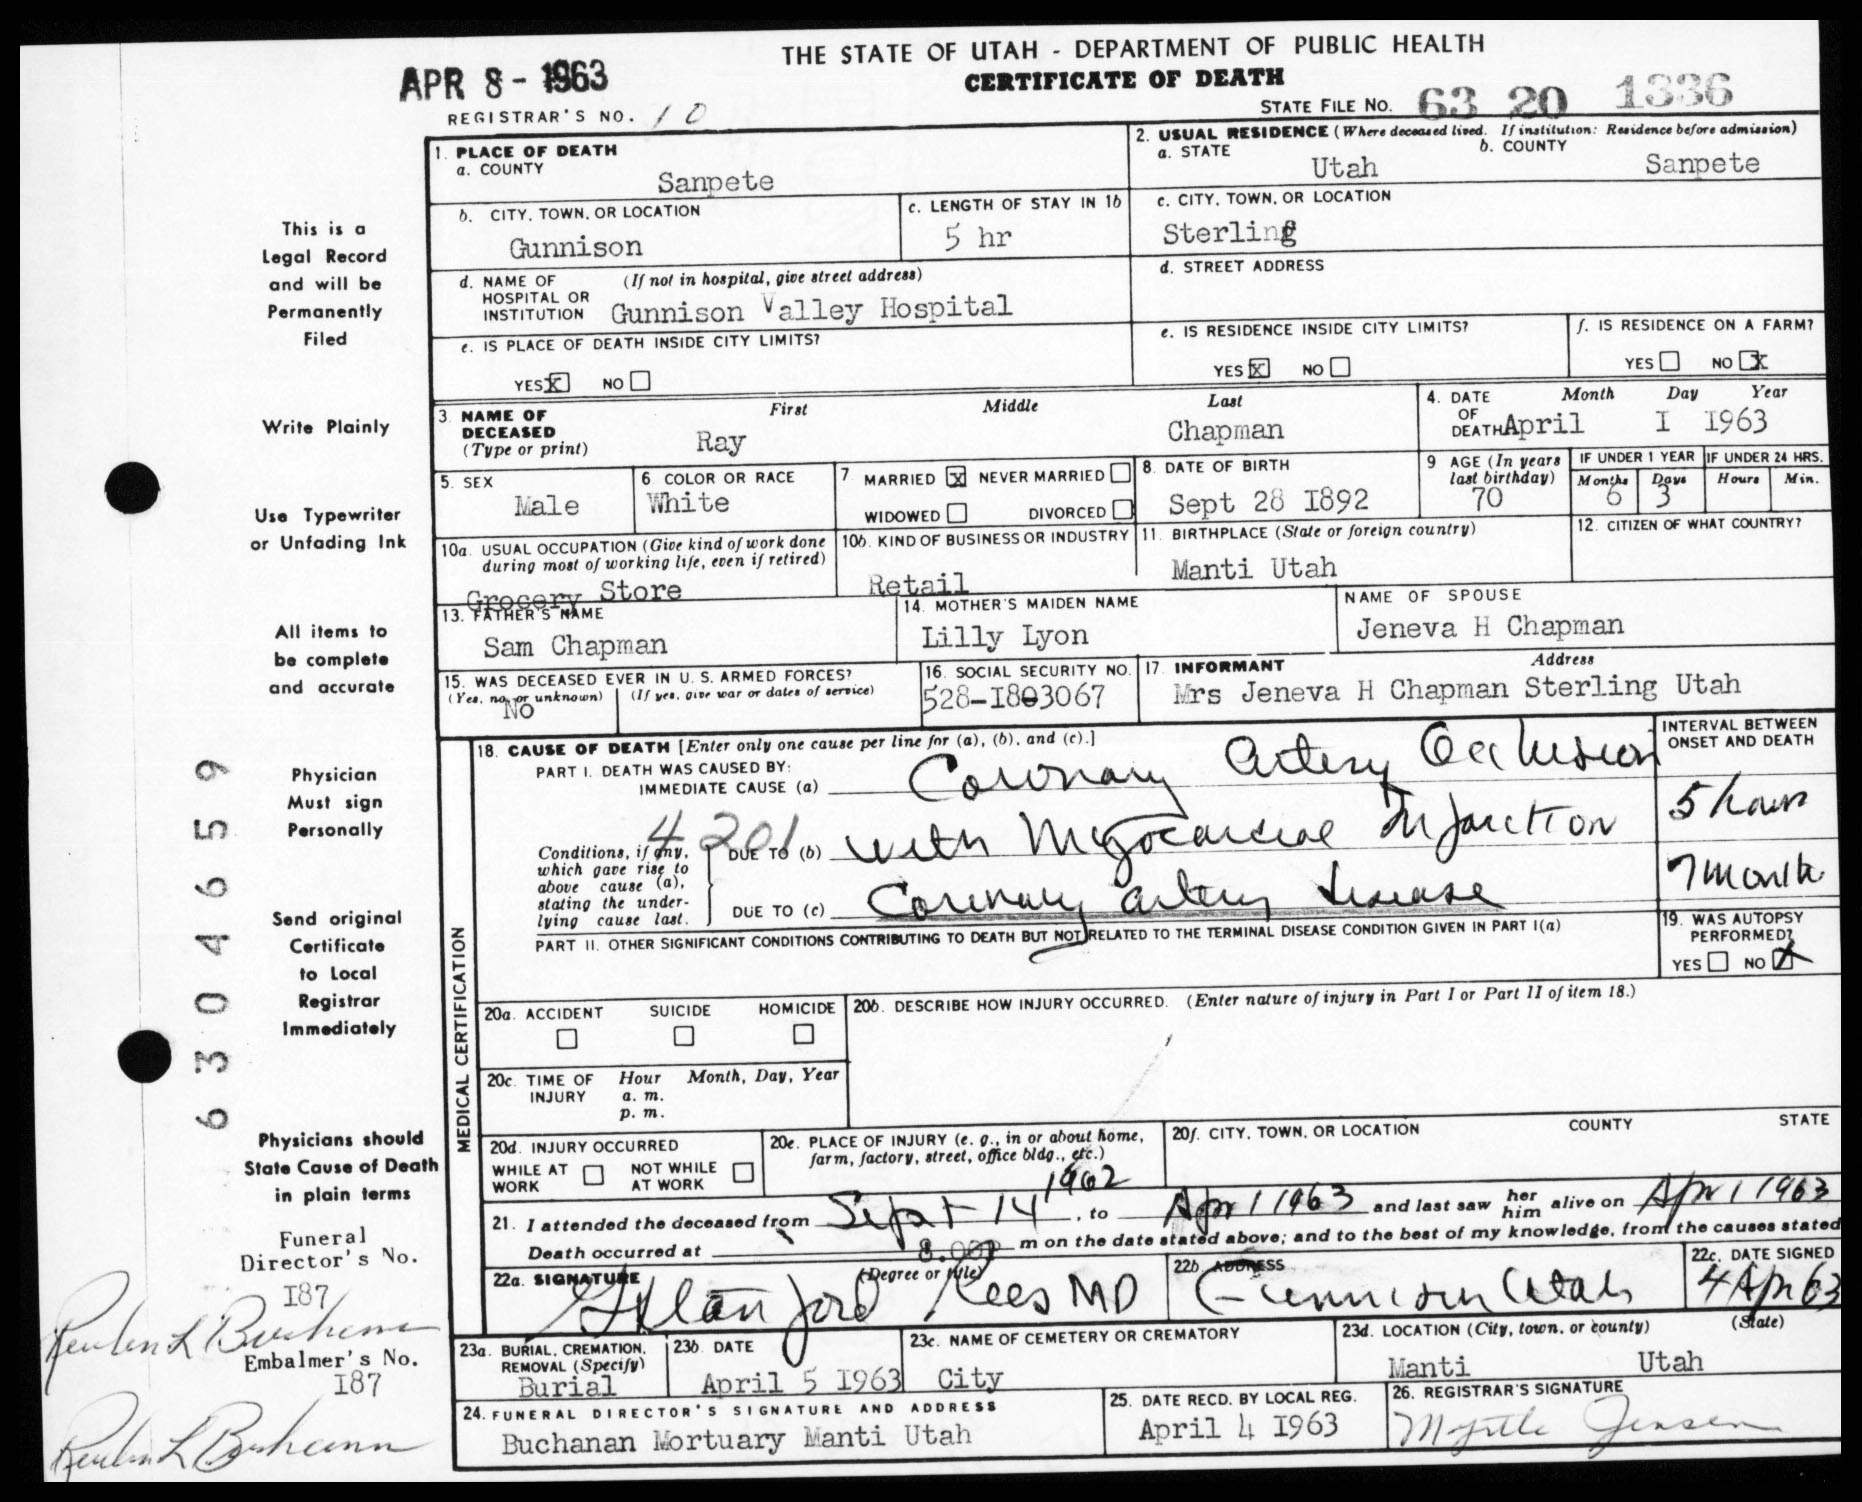 THE STATE OF UTAH - DEPARTMENT OF PUBLIC HEALTH
APR 8 - 1963
CERTIFICATE OF DEATH
REGISTRAR'S NO. 10
STATE FILE NO. 63 20 1336
1. PLACE OF DEATH
a. COUNTY
Sanpete
2. USUAL RESIDENCE (Where deceased lived. If institution: Residence before admission)
a. STATE
Utah
b. COUNTY
Sanpete
b. CITY, TOWN, OR LOCATION
Gunnison
c. LENGTH OF STAY IN 1b
5 hr
c. CITY, TOWN, OR LOCATION
Sterling
d. NAME OF HOSPITAL OR INSTITUTION
(If not in hospital, give street address)
Gunnison Valley Hospital
d. STREET ADDRESS
e. IS PLACE OF DEATH INSIDE CITY LIMITS?
YES X NO
e. IS RESIDENCE INSIDE CITY LIMITS?
YES X NO
f. IS RESIDENCE ON A FARM?
YES NO X
3. NAME OF DECEASED (Type or print)
First Middle Last
Ray Chapman
4. DATE OF DEATH
Month Day Year
April I 1963
5. SEX
Male
6. COLOR OR RACE
White
7. MARRIED X NEVER MARRIED
WIDOWED DIVORCED
8. DATE OF BIRTH
Sept 28 I892
9 AGE (In years last birthday)
70
IF UNDER 1 YEAR
Months Days
6 3
IF UNDER 24 HRS.
Hours Min.
10a. USUAL OCCUPATION (Give kind of work done during most of working life, even if retired)
Grocery Store
10b. KIND OF BUSINESS OR INDUSTRY
Retail
11. BIRTHPLACE (State or foreign country)
Manti Utah
12. CITIZEN OF WHAT COUNTRY?
13. FATHER'S NAME
Sam Chapman
14. MOTHER'S MAIDEN NAME
Lilly Lyon
NAME OF SPOUSE
Jeneva H Chapman
15. WAS DECEASED EVER IN U. S. ARMED FORCES?
(Yes, no, or unknown) (If yes, give war or dates of service)
No
16. SOCIAL SECURITY NO.
528-I803067
17. INFORMANT Address
Mrs Jeneva H Chapman Sterling Utah
MEDICAL CERTIFICATION
18. CAUSE OF DEATH [Enter only one cause per line for (a), (b), and (c).]
PART I. DEATH WAS CAUSED BY:
IMMEDIATE CAUSE (a) Coronary artery Occlusion
INTERVAL BETWEEN ONSET AND DEATH
5 hours
4201
Conditions, if any, which gave rise to above cause (a), stating the underlying cause last.
DUE TO (b) with Myocardial Infarction
DUE TO (c) Coronary artery disease
7 month
PART II. OTHER SIGNIFICANT CONDITIONS CONTRIBUTING TO DEATH BUT NOT RELATED TO THE TERMINAL DISEASE CONDITION GIVEN IN PART I(a)
19. WAS AUTOPSY PERFORMED?
YES NO X
20a. ACCIDENT SUICIDE HOMICIDE
20b. DESCRIBE HOW INJURY OCCURRED. (Enter nature of injury in Part I or Part II of item 18.)
20c. TIME OF INJURY
Hour Month, Day, Year
a. m.
p. m.
20d. INJURY OCCURRED
WHILE AT WORK NOT WHILE AT WORK
20e. PLACE OF INJURY (e. g., in or about home, farm, factory, street, office bldg., etc.)
20f. CITY, TOWN, OR LOCATION COUNTY STATE
21. I attended the deceased from Sept 14 1962, to Apr 1 1963 and last saw her him alive on Apr 1 1963
Death occurred at 8.00P m on the date stated above; and to the best of my knowledge, from the causes stated
22a. SIGNATURE (Degree or title)
Rees MD
22b. ADDRESS
Gunnison Utah
22c. DATE SIGNED
4 Apr 63
23a. BURIAL, CREMATION, REMOVAL (Specify)
Burial
23b. DATE
April 5 I963
23c. NAME OF CEMETERY OR CREMATORY
City
23d. LOCATION (City, town, or county) (State)
Manti Utah
24. FUNERAL DIRECTOR'S SIGNATURE AND ADDRESS
Buchanan Mortuary Manti Utah
25. DATE RECD. BY LOCAL REG.
April 4 I963
26. REGISTRAR'S SIGNATURE
Myrtle Jensen
This is a
Legal Record
and will be
Permanently
Filed
Write Plainly
Use Typewriter
or Unfading Ink
All items to
be complete
and accurate
Physician
Must sign
Personally
Send original
Certificate
to Local
Registrar
Immediately
Physicians should
State Cause of Death
in plain terms
630 46 59
Funeral
Director's No.
I87
Reuben L Buchanan
Embalmer's No.
I87
Reuben L Buchanan